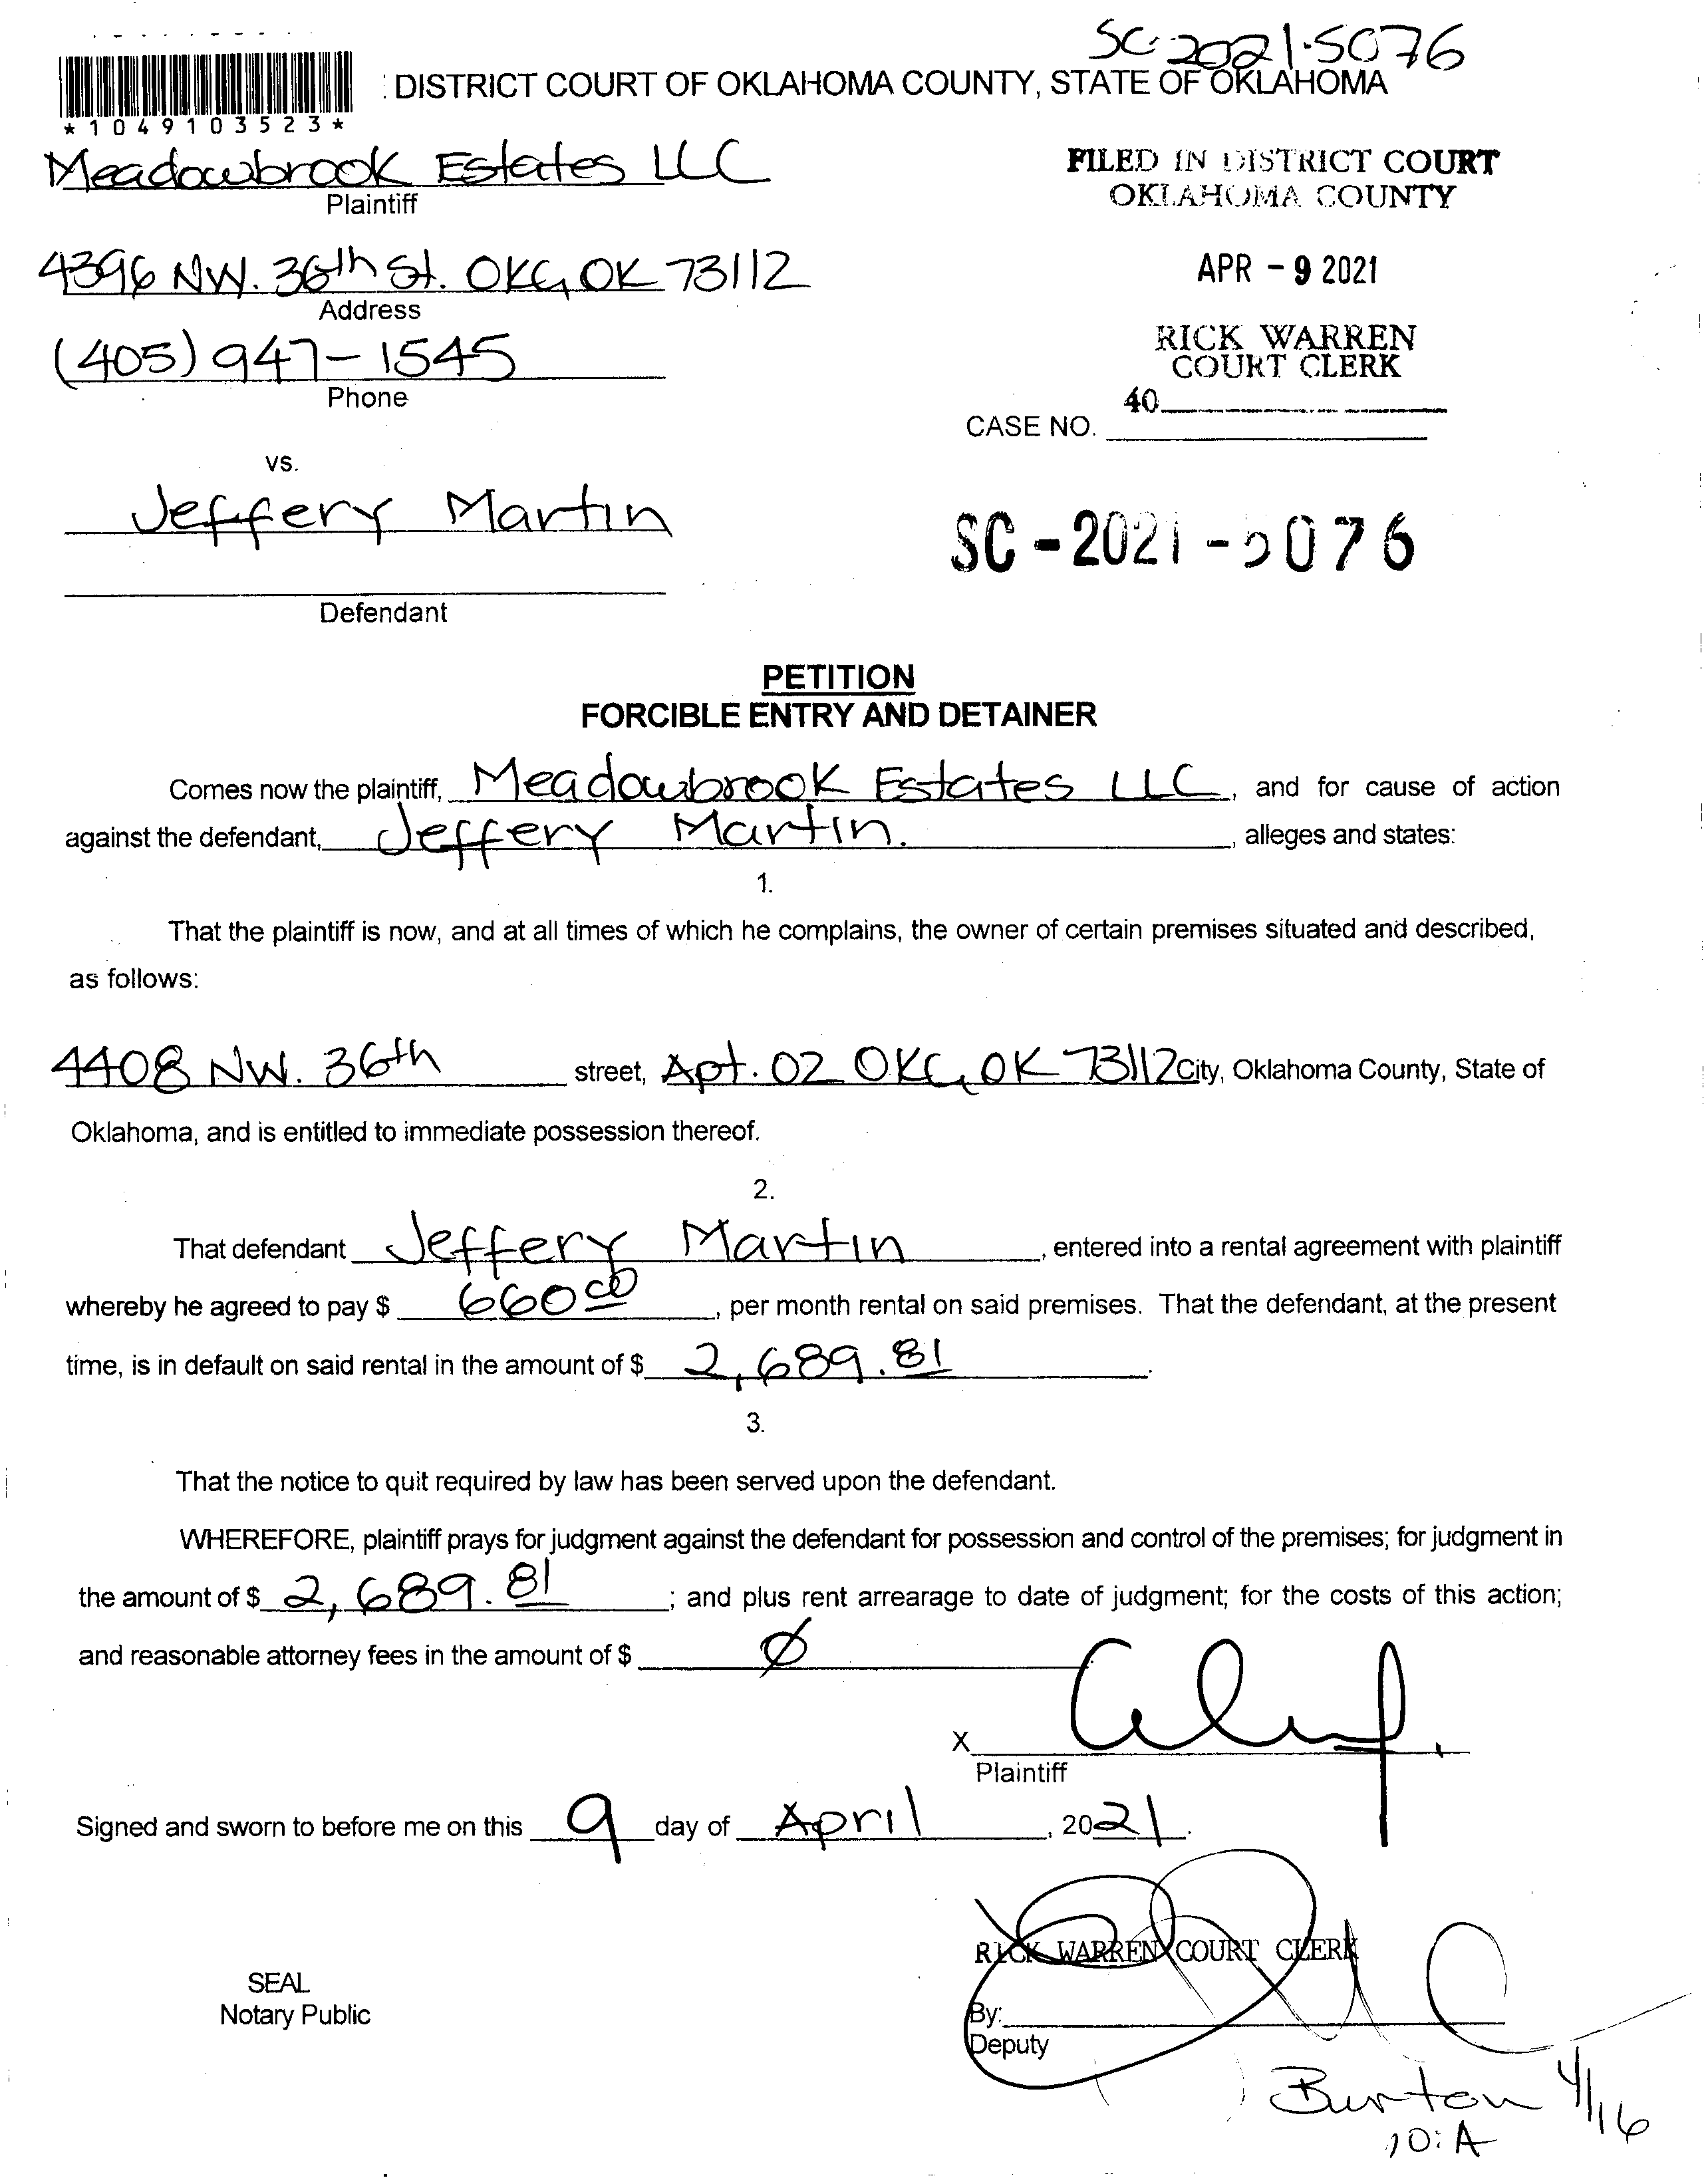 SC-2021-5076
DISTRICT COURT OF OKLAHOMA COUNTY, STATE OF OKLAHOMA
*1049103523*
Meadowbrook Estates LLC
Plaintiff
FILED IN DISTRICT COURT
OKLAHOMA COUNTY
4396 NW. 36th St. OKC, OK 73112
Address
APR - 9 2021
(405) 947-1545
Phone
RICK WARREN
COURT CLERK
40
CASE NO.
vs.
Jeffery Martin
SC - 2021 - 5076
Defendant
PETITION
FORCIBLE ENTRY AND DETAINER
Comes now the plaintiff, Meadowbrook Estates LLC, and for cause of action
against the defendant, Jeffery Martin. , alleges and states:
1.
That the plaintiff is now, and at all times of which he complains, the owner of certain premises situated and described,
as follows:
4408 NW. 36th street, Apt. 02 OKC, OK 73112 City, Oklahoma County, State of
Oklahoma, and is entitled to immediate possession thereof.
2.
That defendant Jeffery Martin, entered into a rental agreement with plaintiff
whereby he agreed to pay $ 660 00, per month rental on said premises. That the defendant, at the present
time, is in default on said rental in the amount of $ 2,689.81.
3.
That the notice to quit required by law has been served upon the defendant.
WHEREFORE, plaintiff prays for judgment against the defendant for possession and control of the premises; for judgment in
the amount of $ 2,689.81; and plus rent arrearage to date of judgment; for the costs of this action;
and reasonable attorney fees in the amount of $ Ø
X
Plaintiff
Signed and sworn to before me on this 9 day of April, 2021.
RICK WARREN COURT CLERK
SEAL
Notary Public
By:
Deputy
Burton 4/16
10:A